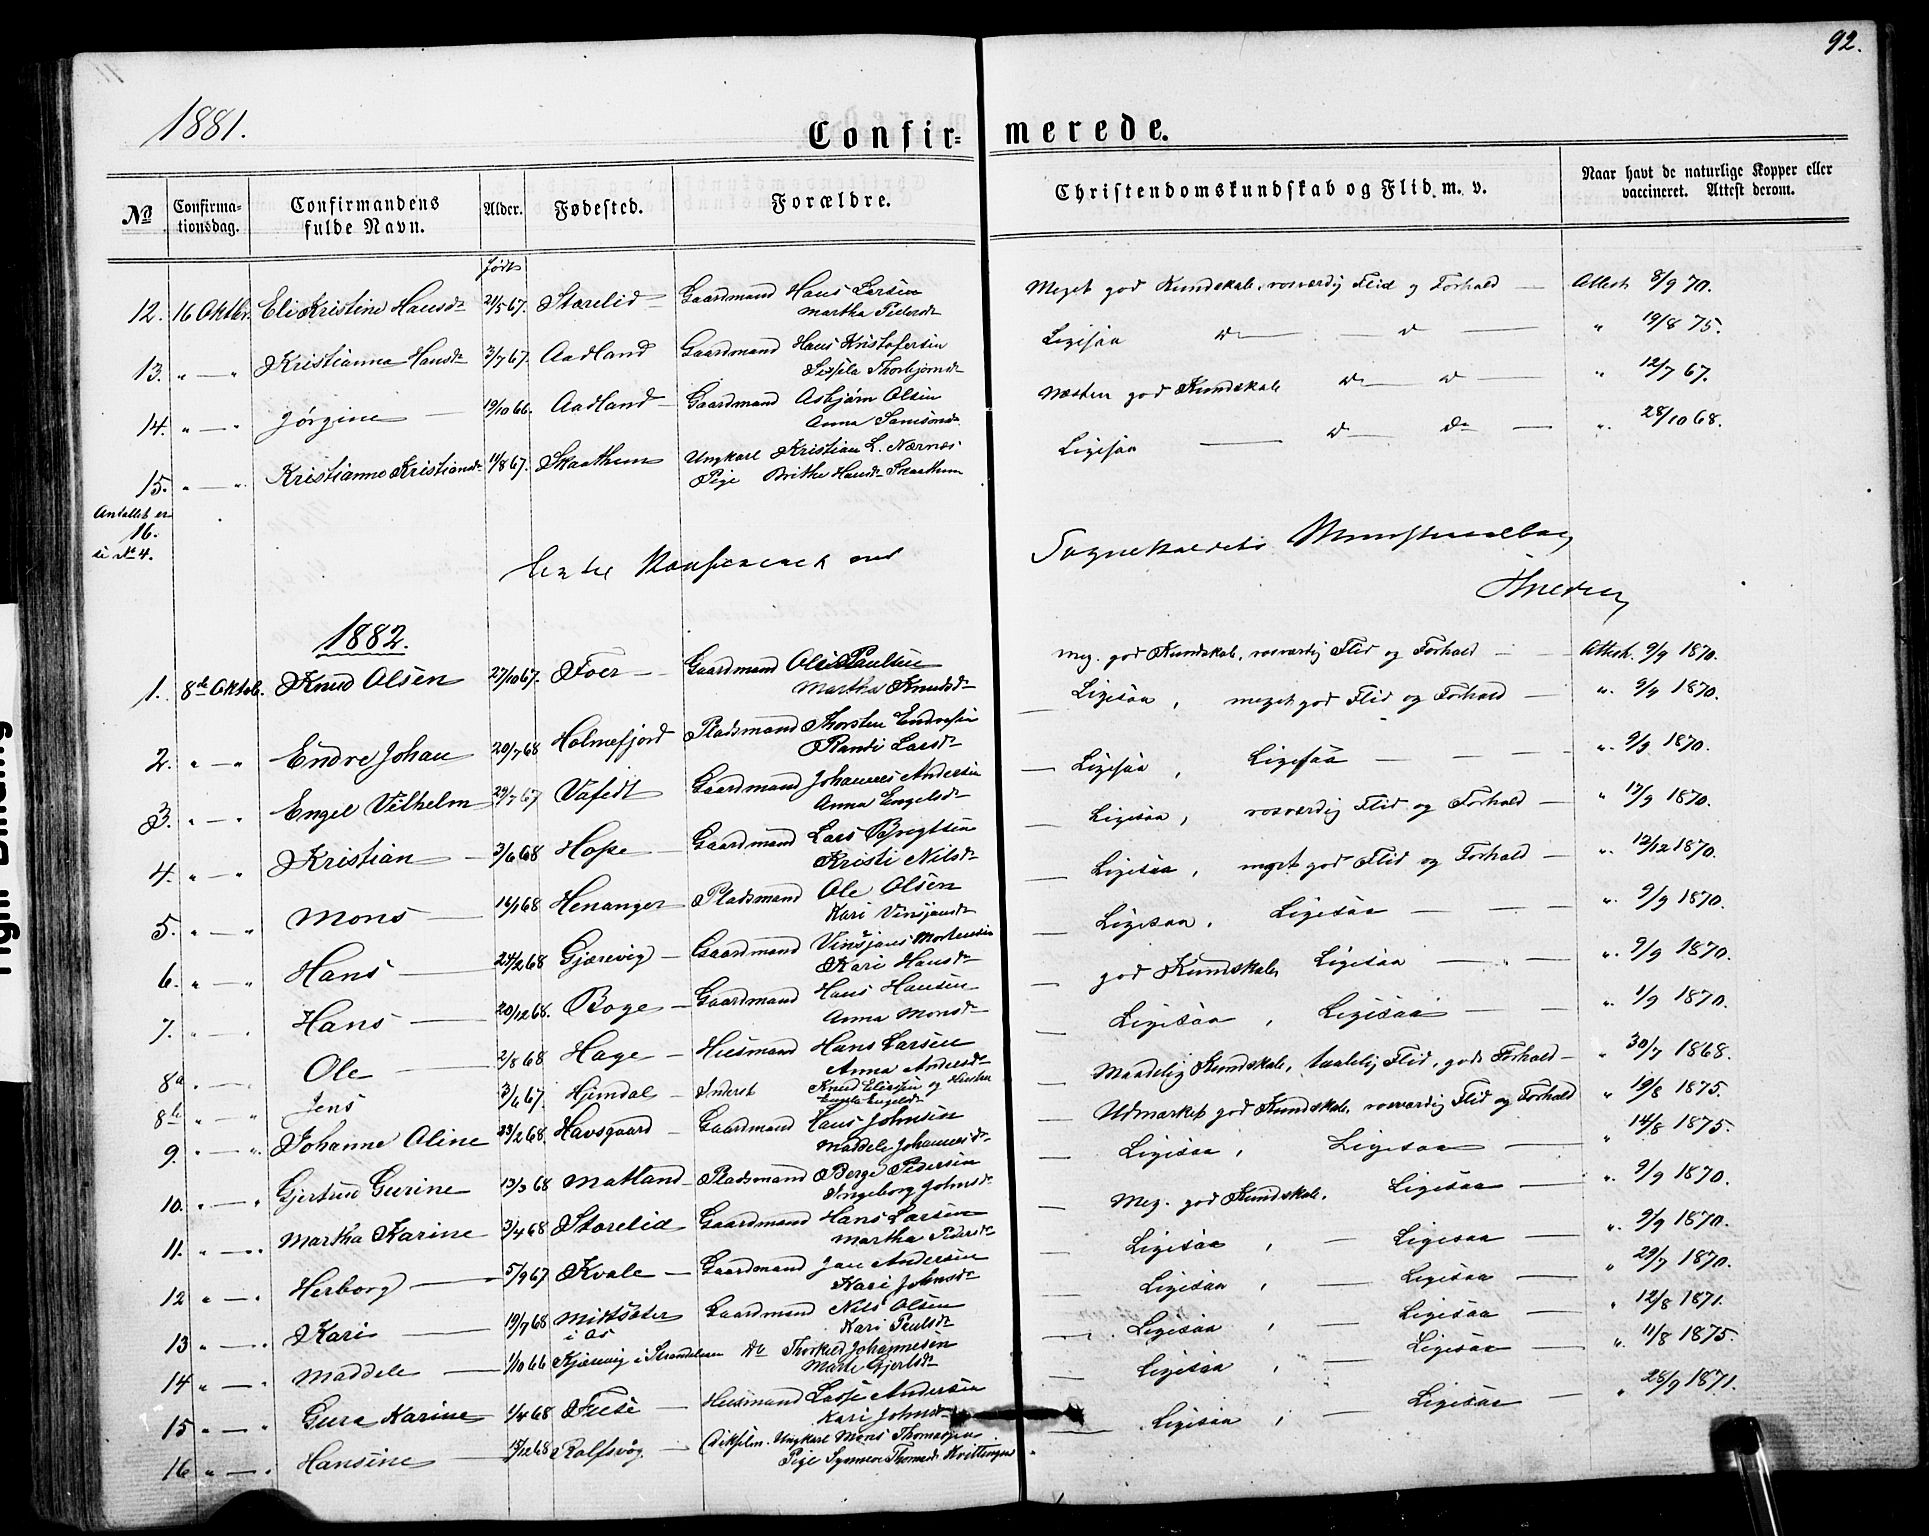 92.
1881.
Confir- merede.
No Confirmationsdag. Confirmandens fulde Navn. Alder. Fødested. Forældre. Christendomskundskab og Flid m. v. Naar havt de naturlige Kopper eller vaccineret. Attest derom.
født
12. 16 Oktbr. Eli Kristine Hansdr 21/5 67. Storelid Gaardmand Hans Larsen Meget god Kundskab, rosværdig Flid og Forhold — Attest 8/9 70.
Martha Pedersdr
13. " — " Kristianna Hansdr 3/7 67. Aadland Gaardmand Hans Kristofersen Ligesaa do — do — " 19/8 75.
Sissela Thorbjørnsdr
14. " — " Jørgine — 19/10 66. Aadland — Gaardmand Asbjørn Olsen Næsten god Kundskab do — do — " 12/7 67.
Anna Samsonsdr
15. " — " Kristianne Kristiansdr 11/8 67. Skaathun Ungkarl Kristian L. Nærnæs Ligesaa — do do — ". 28/10 68.
Pige Brithe Hansdr Skaathun
Antallet er
16.
se No 4.
Sognekaldets
1882.
1. 8de Oktob. Knud Olsen 27/10 67. Foer — Gaardmand Ole Paulsen Meg. god Kundskab, rosværdig Flid og Forhold — Attest. 9/9 1870.
Martha Knudsdr
2. " — " Endre Johan 20/7 68 Holmefjord Pladsmand Thorsten Endresen — Ligesaa, meget god Flid og Forhold — ". 9/9 1870.
Randi Larsdr
3. " — " Engel Vilhelm 29/7 67 Vafedt Gaardmand Johannes Andersen — Ligesaa, Ligesaa — — ". 9/9 1870.
Anna Engelsdr
4. " — " Kristian — 3/6 68 Hope — Gaardmand Lars Brygtsen — Ligesaa, rosværdig Flid og Forhold — " 17/9 1870.
Kristi Nilsdr
5. " — " Mons — 16/1 68 Henanger Pladsmand Ole Olsen — Ligesaa, meget god Flid og Forhold — ". 12/12 1870.
Kari Vinsjansdr
6. " — " Hans — 24/2 68 Gjærevig — Gaardmand Vinsjans Mortensen — Ligesaa. Ligesaa — — ". 9/9 1870.
Kari Hansdr
7. " — " Hans — 20/12 68. Boge — Gaardmand Hans Hansen — god Kundskab, Ligesaa — " — ". 9/9 1870.
Anna Monsdr
8a " — " Ole — 2/8 68 Hage — Husmand Hans Larsen — Ligesaa, Ligesaa — — ". 1/9 1870.
Anna Andersdr
8b " — " Jens 3/6 67. Hjemdal — Inderst Knud Eliassen og Hustru — Maadelig Kundskab, taalelig Flid, gode Forhold — " 30/7 1868.
Engels Engelsdr
9. " — " Johanne Oline 23/2 68. Havsgaard — Gaardmand Hans Johnsen — Udmærket god Kundskab, rosværdig Flid og Forhold " 19/8 1875.
Maddele Johannesdr
10. " — " Gjertrud Gurine 13/3 68 Matland — Pladsmand Berge Pedersen — Ligesaa, Ligesaa — " 14/8 1875.
Ingeborg Johnsdr
11. " — " Martha Karine 3/4 68 Storelid Gaardmand Hans Larsen — Meg. god Kundskab. Ligesaa — ". 9/9 1870.
Martha Pedersdr
12 " — " Herborg — 5/9 67 Kvale — Gaardmand Jan Andersen — Ligesaa, — Ligesaa — ". 9/9 1870.
Kari Johnsdr
13 " — " Kari — 19/7 68 Midtsæter Gaardmand Nils Olsen — Ligesaa, — Ligesaa — " 29/7 1870.
i Os Kari Paulsdr
14 " — " Maddele — 1/10 66 Kjærevig i Strandebarm Do Thorkild Johannesen — Ligesaa, — Ligesaa — " 12/8 1871.
Marte Gjertsdr
15 " — " Gura Karine 1/4 68 Fuse — Husmand Lasse Andersen — Ligesaa, — Ligesaa — ". 11/8 1875.
Kari Johnsdr
16 " — " Hansine — 17/12 68 Rolfsvog — Ungkarl Mons Thomassen Ligesaa, — Ligesaa — " 28/9 1871.
Pige Synneve Thomasdr Kvittingen